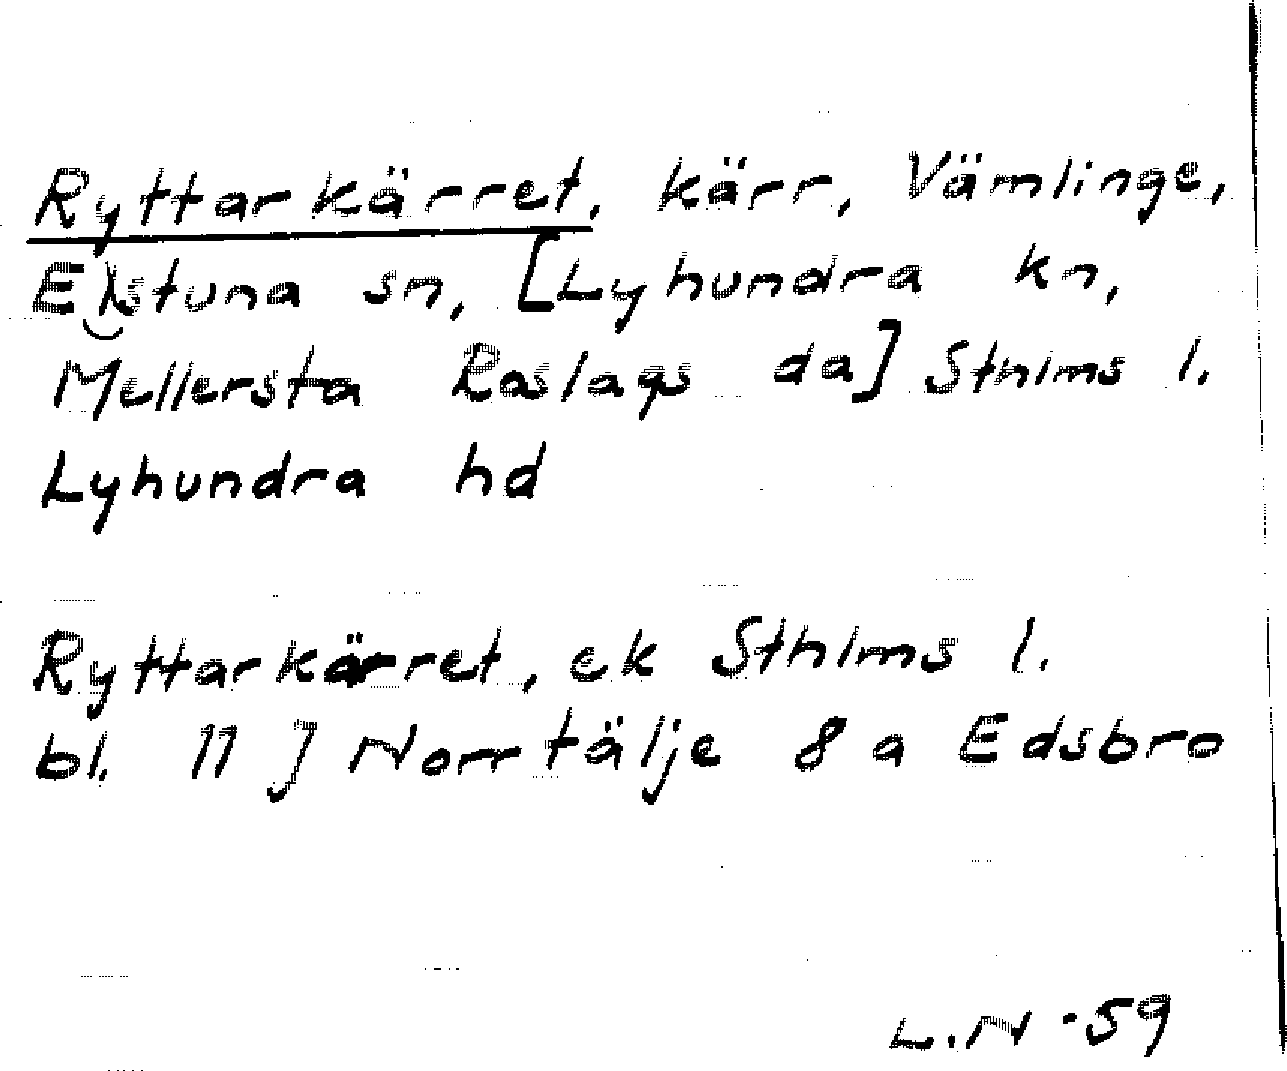 Ryttarkärret, kärr, Vämlinge,
Estuna sn, [Lyhundra kn,
Mellersta Roslags da] Sthlms l.
Lyhundra hd
Ryttarkärret, ek Sthlms l.
bl. 11 J Norrtälje 8 a Edsbro
L.N -59